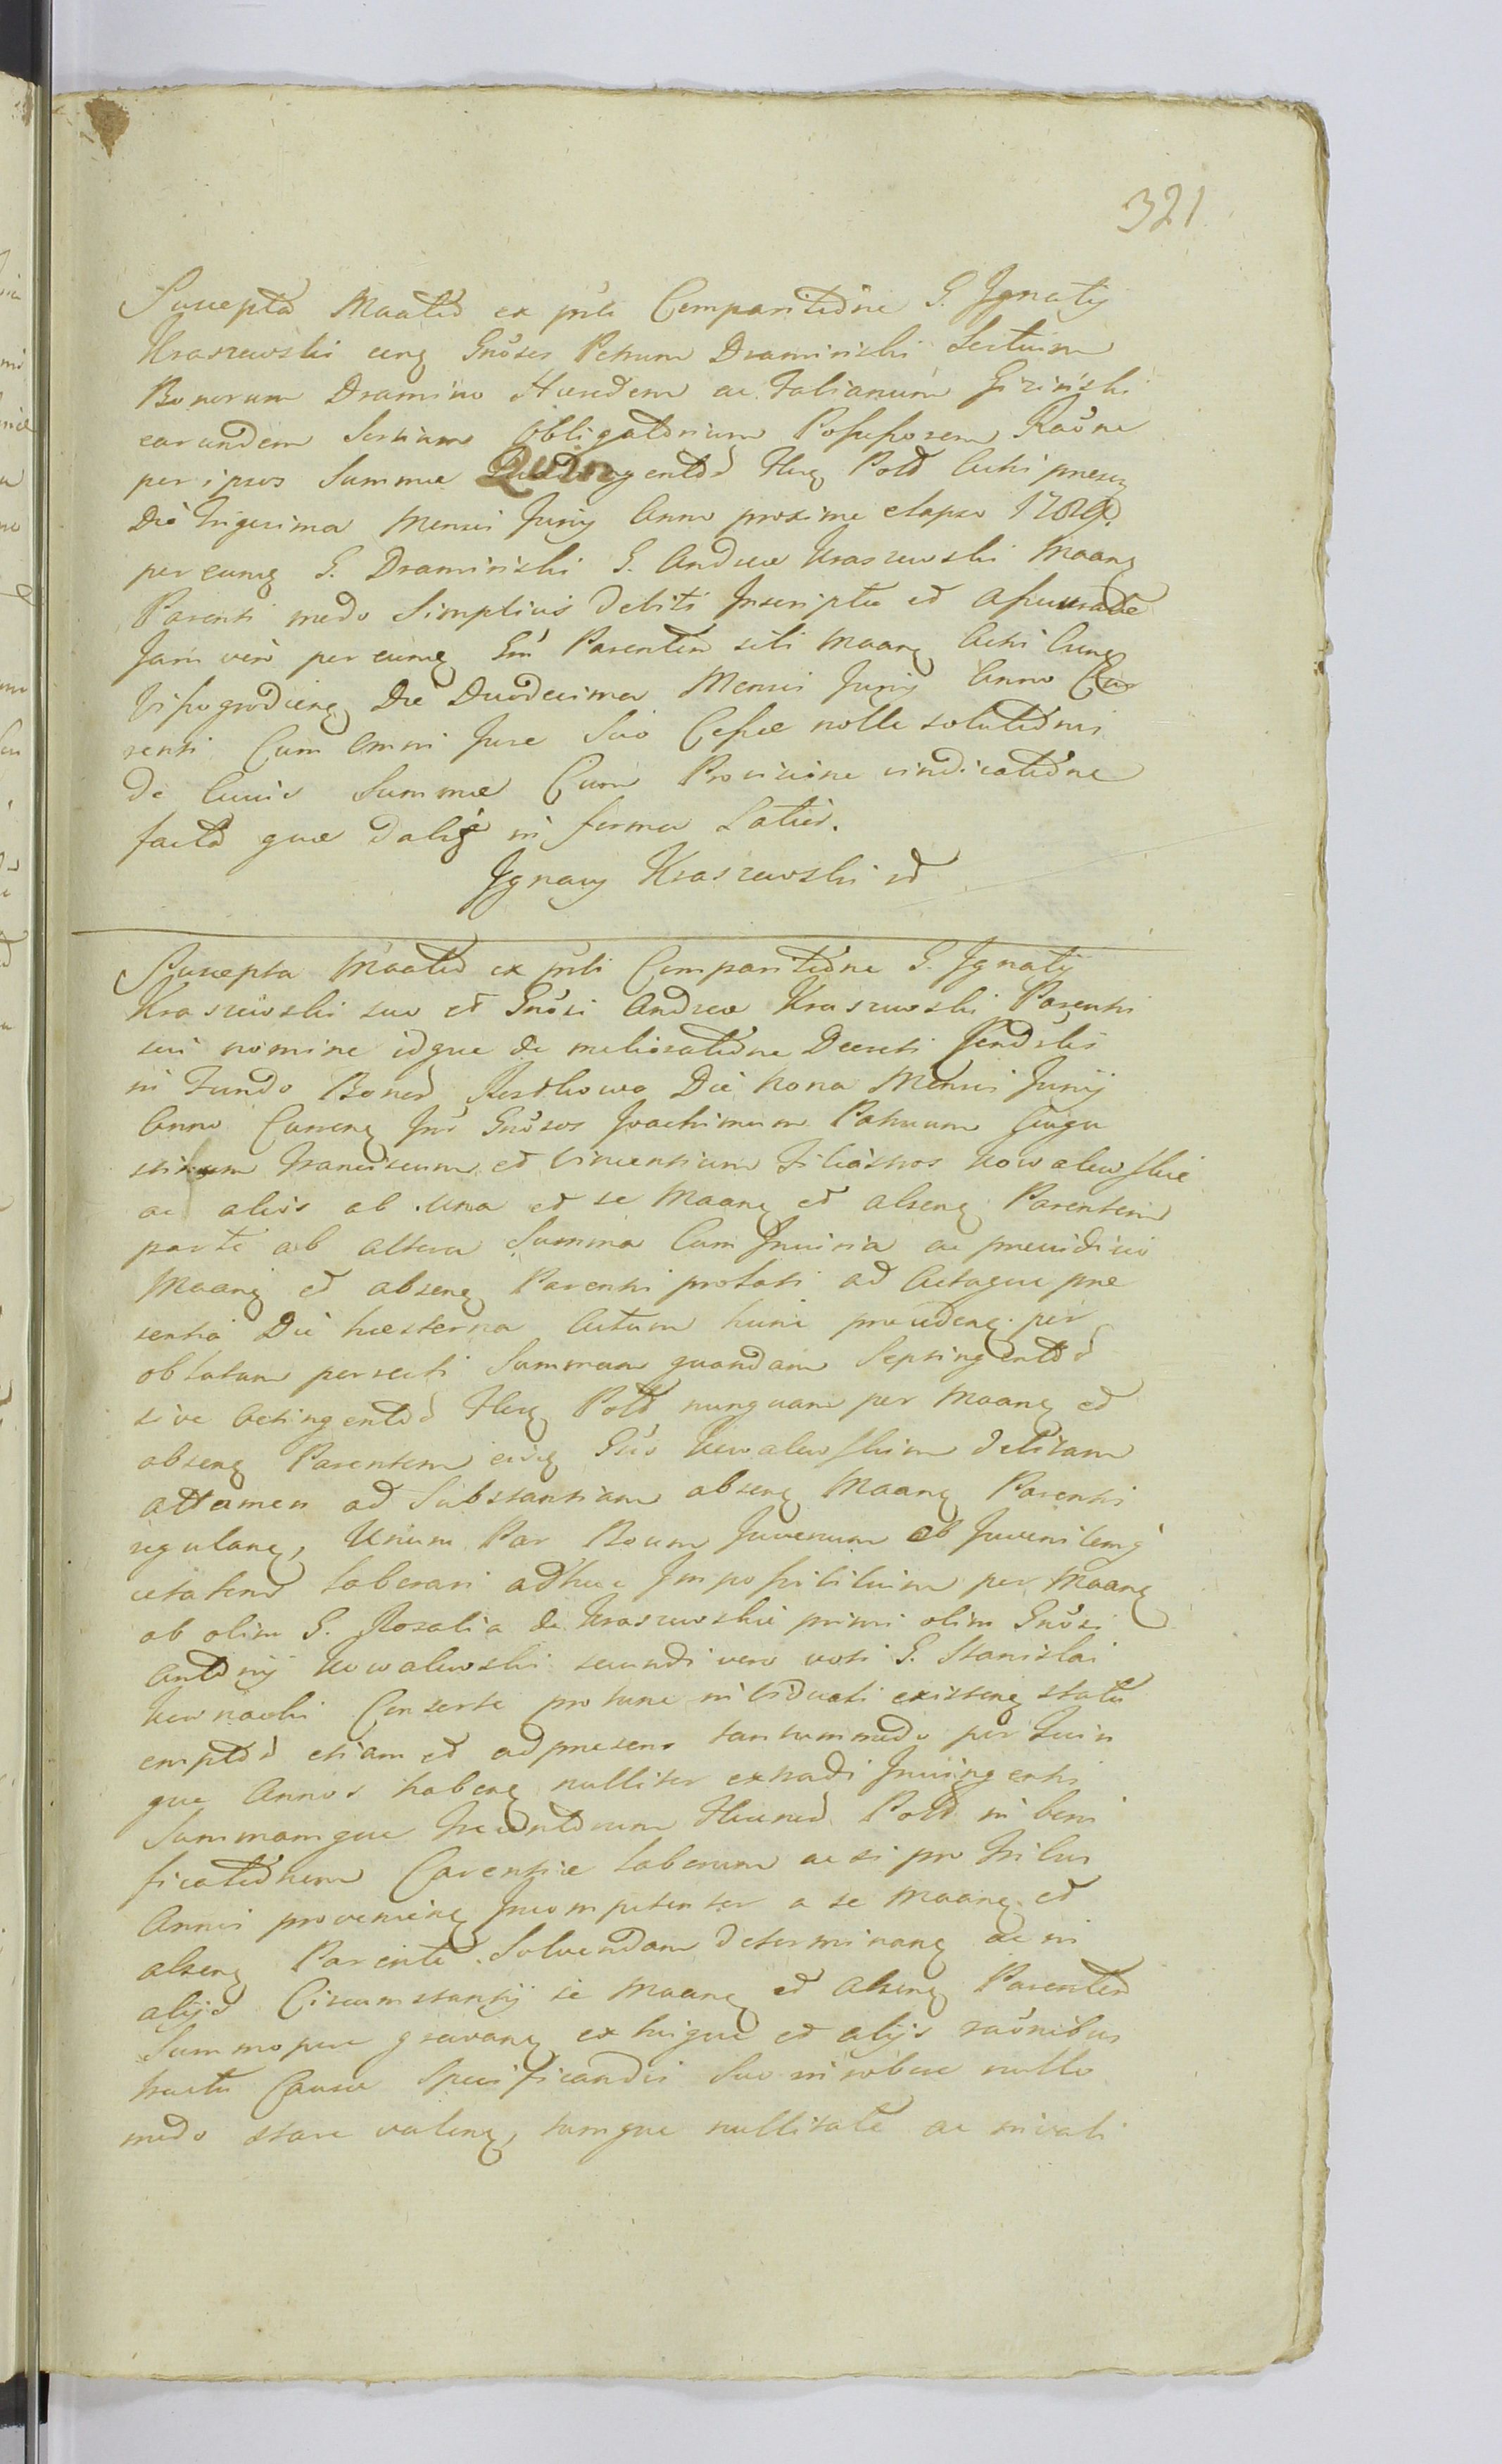 321
Suscepta Maatio ex pñti Comparitione G. Ignatij
Kraszewski eung Gñosos Petrum Draminiski Sortium
Bonorum Dramino Hæredem ac Fabianum Giziński
earundem Sortium Obligatorium Possessorem Raõne
per ipsos Summæ Quingentor Flũ Polo Actis præsen
Die trigesima Mensis Junij Anno proxime elapso 1789.
per eumq G. Draminiski G. Andreæ Kraszewski Maang
Parenti modo Simplicis debiti Inscriptæ et Assecuratæ
Jam vero per eumq Gm Parentem sibi Maang Actis Cune
Vissogrodieng Die Duodecima Mensis Junij Anno Cur
renti Cum omni Jure Suo Cessæ nolle solutionis
de cuius Summæ Cum Provisione vindicatione
facta quæ dalisq in forma Latiori.
Ignacy Kraszewski
Suscepta Maatio ex pñti Comparitione G. Ignatij
Kraszewski suo et Gñosi Andreæ Kraszewski Parentis
sui nomine idque de melioratione Decreti
in Fundo Bonor Die Nona Mensis Junij
Anno Curreng Inr Gñosos Joachimum Patruum Augu
stinum Franciscum et Vincentium Filiastros Kowalewskie
ac alios ab una et se Maang et abseng Parentem
parte ab altera Summa Cum Injuria ac præjudicio
Maang et abseng Parentis prolati ad Actaque præ
sentia Die hæsterna Actum hunc præcedeng per
oblatam persecti Summam quandam Septingentor
sive Octingentor Flũ Polo nunquam per Maang et
abseng Parentem eisq Gñis Kowalewskim debitam
attamen ad Substantiam abseng Maang Parentis
regulang, Unum Par Boum Juvenum ob Juvenilemq
ætatem laborari adhuc Impossibilium per Maang
ab olim G. Rosalia de Kraszewskie primi olim Gñosi
Antonij Kowalewski secundi vero voti G. Stanislai
Consorte pro tunc in viduati existeng statu
emptor etiam et ad præsens tantummodo per Quin
que Annos habeng nulliter extradi Injungenti
Summamque Trecentorum Florenor Polo in boni
ficationem Carentiæ laborum ac si pro tribus
Annis provenieng Incompetenter a se Maang et
abseng Parente Solvendam determinang ac in
alijs Circumstantijs se Maang et abseng Parentem
Summopere gravang ex hisque et alijs raõnibus
tractu Causæ Specificandis Suo in robore nullo
modo stare valeng, tamque nullitate ac invali